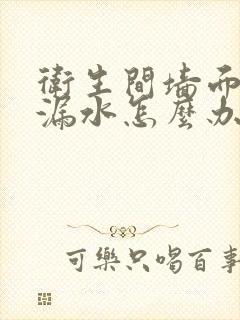 衛生間墻面
漏水怎麼办
可樂只喝百事